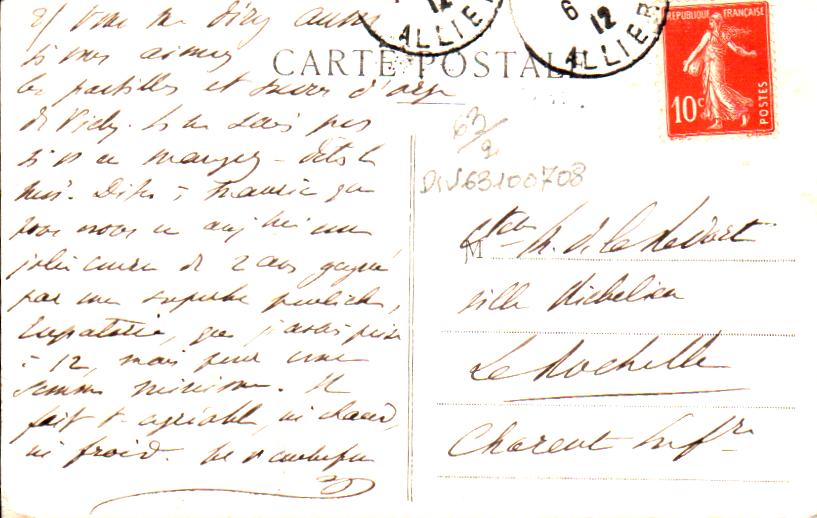 2/ Vous me direz aussi
si vous aimez
les pastilles et sucres d'orge
de Vichy. Je ne sais pas
si v en mangez - dites le
moi. Dites à que
nous avons eu aujd'hui une
jolie course de 2 ans gagnée
par une superbe pouliche,
Eupatoria, que j'avais prise
à 12, mais pour une
somme minime. Il
fait t. agréable, ni chaud,
ni froid. Je v embrasse
CARTE POSTALE
ALLIER
12
6
12
ALLIER
RÉPUBLIQUE FRANÇAISE
10c
POSTES
63/2
63100708
M
villa Richelieu
La Rochelle
Charente Infre